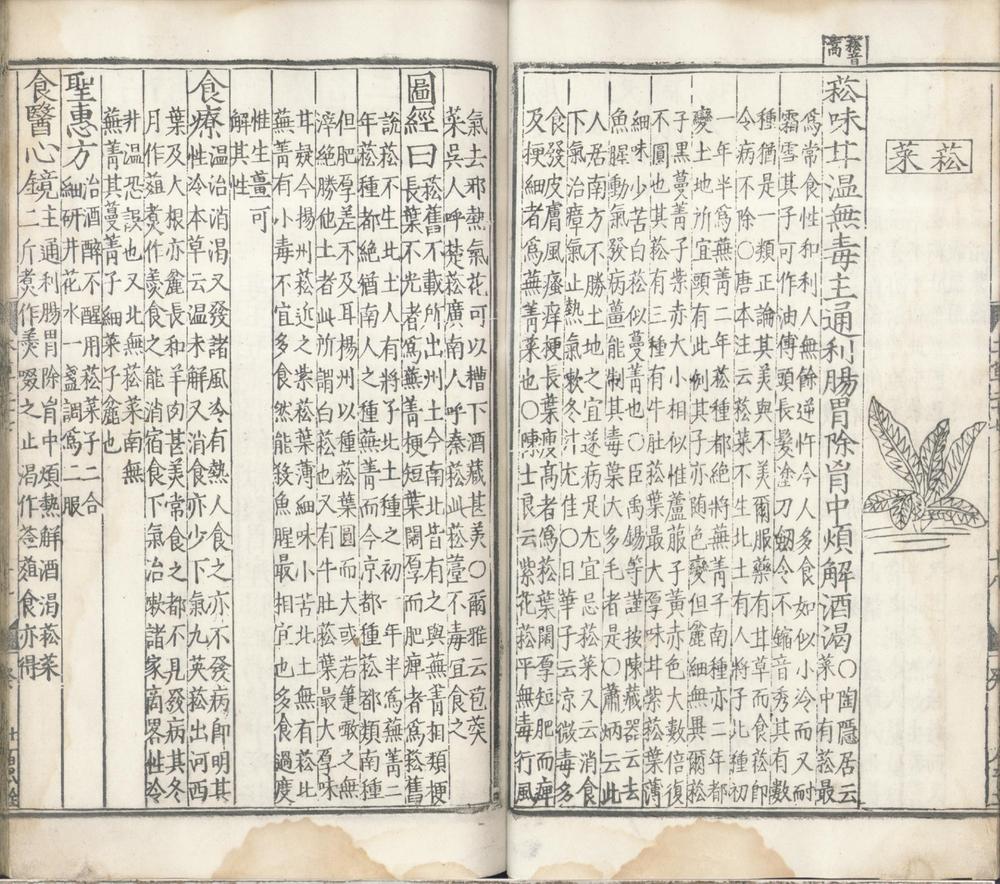 菘音嵩
菘菜
菘味甘温無毒主通利腸胃除胷中煩解酒渴○陶隱居云
菜中有菘最
爲常食性和利人無餘逆忤今人多食如似小冷而又耐
霜雪其子可作油傅頭長髮塗刀劒令不鏥音秀其有數
種猶是一類正論其美與不美爾服藥有甘草而食菘即
令病不除○唐本注云菘菜不生北土有人將子北種初
一年半爲蕪菁二年菘種都絶將蕪菁子南種亦二年都
變土地所宜頭有此例其子亦随色變但麄細無異爾菘
子黑蔓菁子紫赤大小相似惟蘆菔子黃赤色大數倍復
不圓也其菘有三種有牛肚菘葉最大厚味甘紫菘葉薄
細味小苦白菘似蔓菁也○臣禹錫等謹按陳藏器云去
魚腥動氣發病薑能制其毒葉大多毛者是○蕭炳云此
人居南方不勝土地之宜遂病足尤宜忌菘菜又云消食
下氣治瘴氣止熱氣欶冬汁尤佳○日華子云凉微毒多
食發皮膚風瘙痒梗長葉瘦高者爲菘葉闊厚短肥而痺
及梗細者爲蕪菁菜也○陳士良云紫花菘平無毒行風
氣去邪熱氣花可以糟下酒藏甚美○爾雅云苞葖
菜吳人呼楚菘廣南人呼秦菘此菘薹不毒宜食之
圖經曰菘舊不載所出州土今南北皆有之與蕪菁相類梗
長葉不光者爲蕪菁梗短葉闊厚而肥痺者爲菘舊
說菘不生北土人有將子種之初一年半爲蕪菁二
年菘種都絶猶南人之種蕪菁而今京都種菘都類南種
但肥厚差不及耳揚州以種菘葉圓而大或若箑啖之無
滓絶勝他土者此所謂白菘也又有牛肚菘葉最大厚味
甘疑今揚州菘近之紫菘葉薄細味小苦北土無有菘比
蕪菁有小毒不宜多食然能殺魚腥最相宜也多食過度
惟生薑可
解其性
食療温治消渴又發諸風冷有熱人食之亦不發病即明其
性冷本草云温未解又消食亦少下氣九英菘出河西
葉及大根亦麄長和羊肉甚美常食之都不見發病其冬
月作葅煮作羹食之能消宿食下氣治嗽諸家商畧性冷
井温恐誤也又北無菘菜南無
蕪菁其蔓菁子細菜子麄也
聖惠方治酒醉不醒用菘菜子二合
細研井花水一盞調爲二服
食醫心鏡主通利腸胃除胷中煩熱解酒渴菘菜
二斤煮作羹啜之止渴作虀葅食亦得